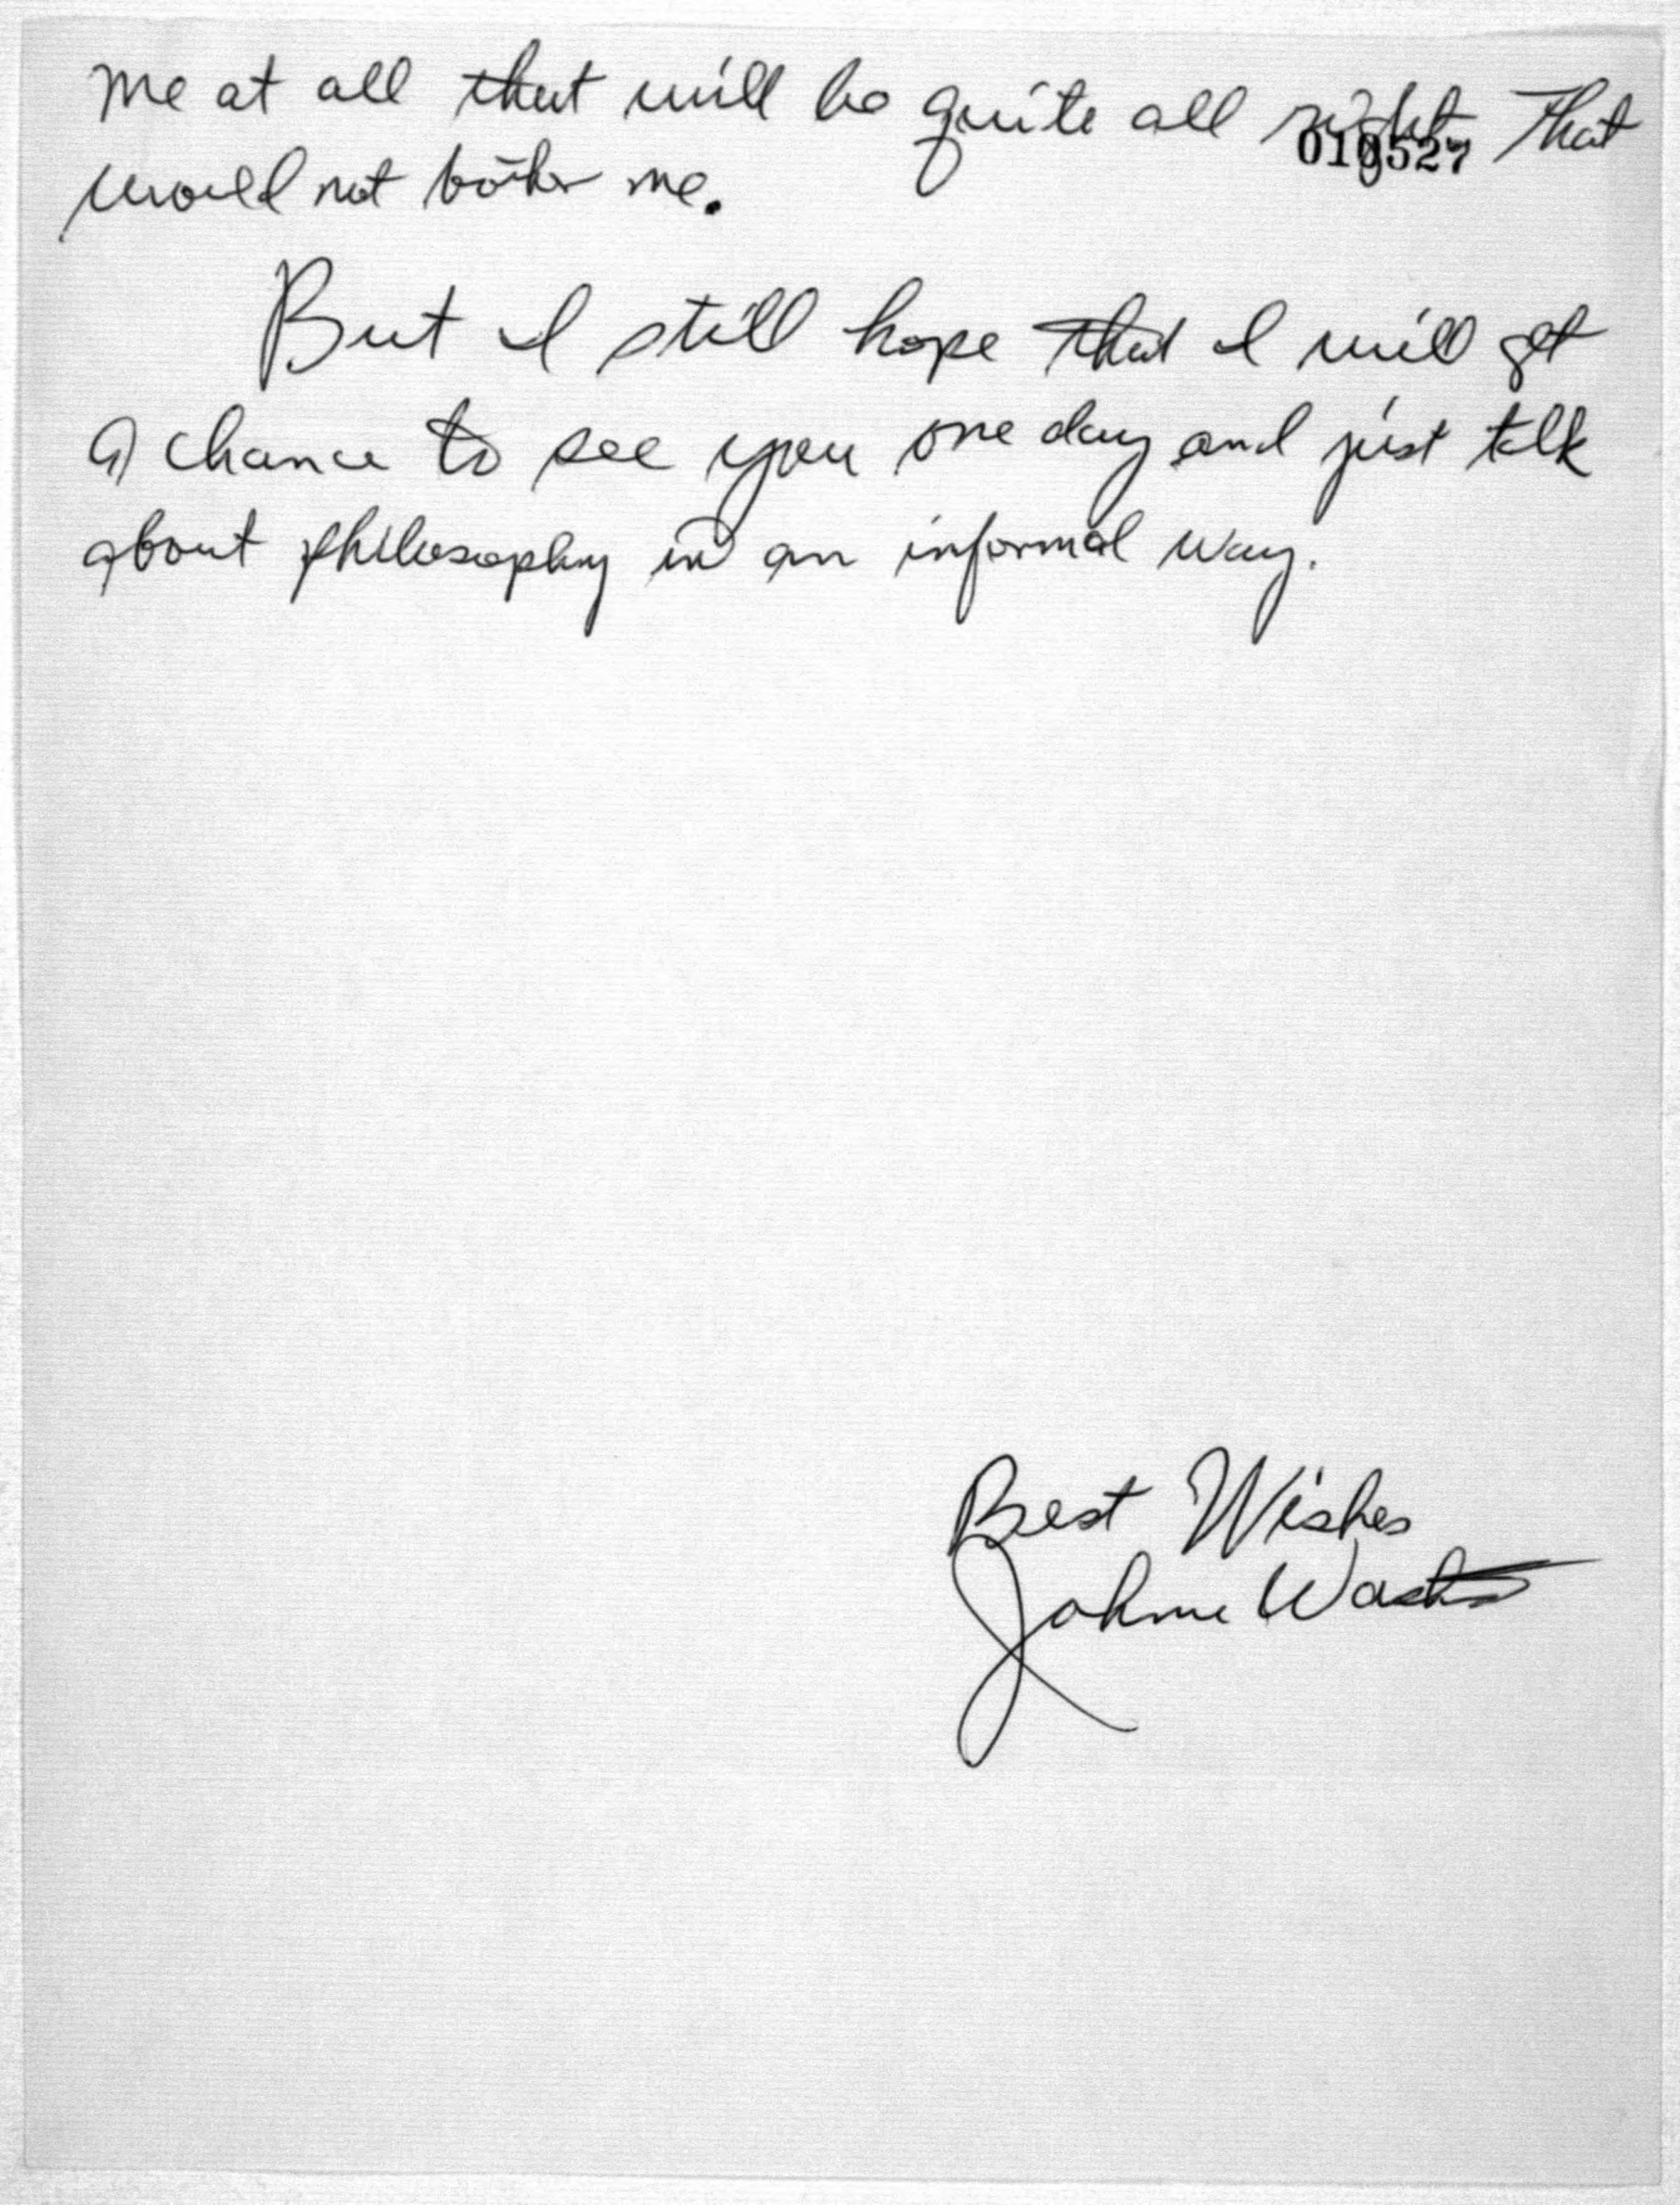 me at all that will be quite all right That
010527
would not bother me.
But I still hope that I will get
a chance to see you one day and just talk
about philosophy in an informal way.
Best Wishes
Johnnie